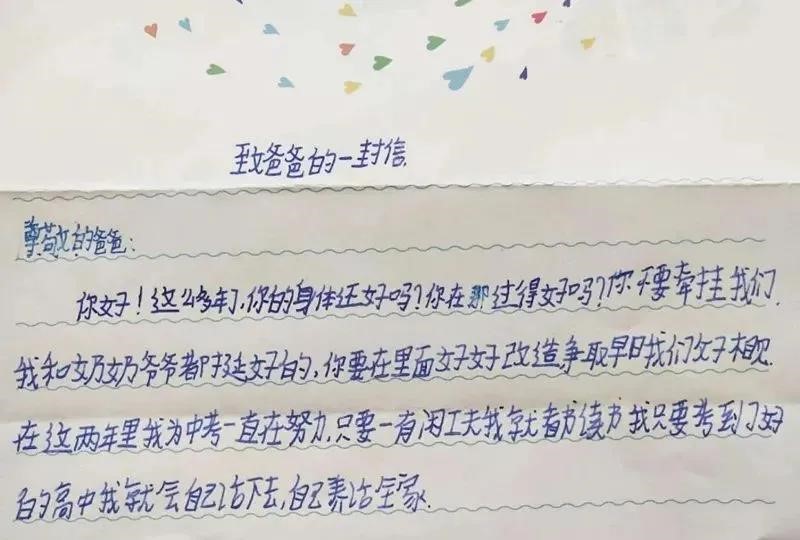 致爸爸的一封信
尊敬的爸爸:
你好!这么多年了,你的身体还好吗?你在那过得好吗?你不要牵挂我们,
我和奶奶爷爷都挺好的,你要在里面好好改造争取早日我们父子相见.
在这两年里我为中考一直在努力,只要一有闲工夫我就看书读书我只要考到了好
的高中我就会自己活下去,自己养活全家.